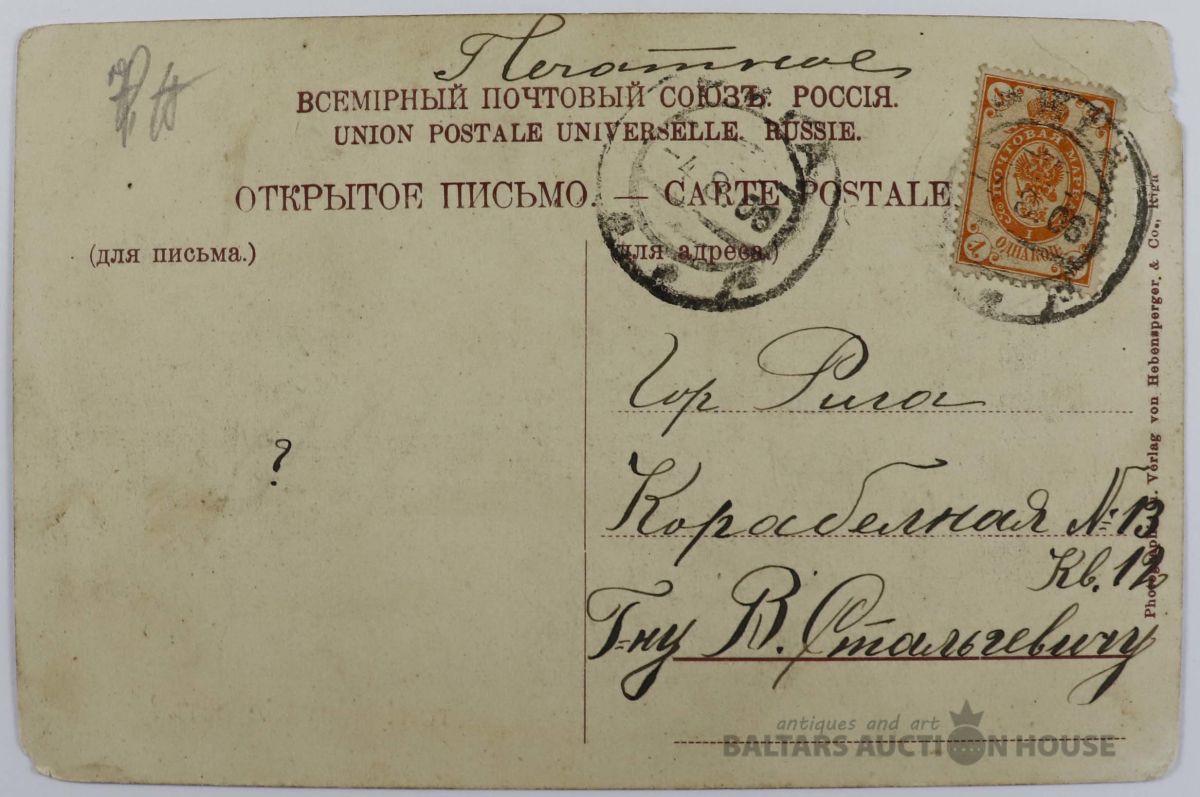 Печатное
ВСЕМІРНЫЙ ПОЧТОВЫЙ СОЮЗЪ. РОССІЯ.
UNION POSTALE UNIVERSELLE. RUSSIE.
ОТКРЫТОЕ ПИСЬМО. — CARTE POSTALE
(для письма.)
(для адреса.)
ПОЧТОВАЯ МАРКА
1
1
ОДНА КОП.
Гор Рига
Корабелная № 13
Кв. 12
Г-ну В. Стальгевичу
?
Verlag von Hebensperger & Co., Riga
antiques and art
BALTARS AUCTION HOUSE